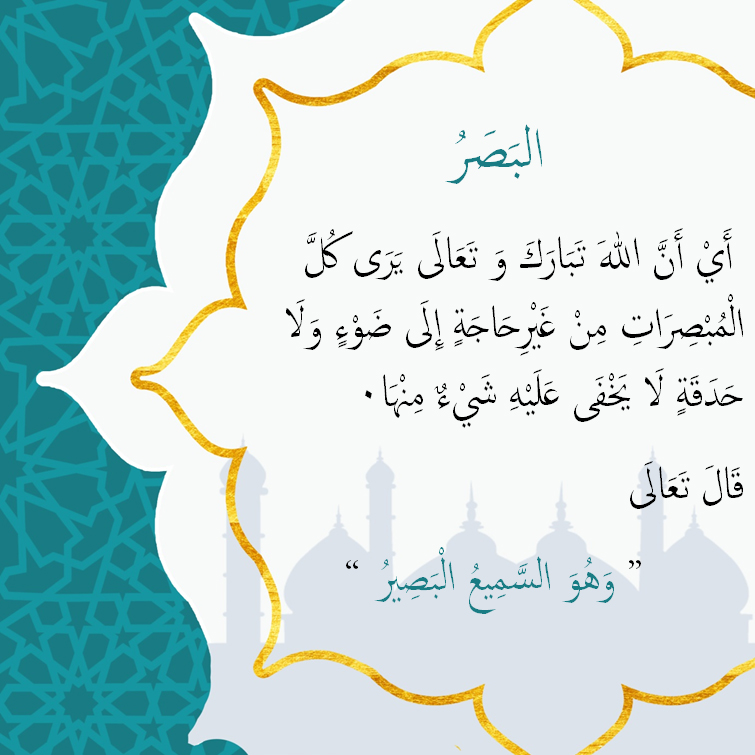 البَصَرُ
أَيْ أَنَّ اللهَ تَبَارَكَ وَ تَعَالَى يَرَى كُلَّ
الْمُبْصِرَاتِ مِنْ غَيْرِ حَاجَةٍ إِلَى ضَوْءٍ وَلَا
حَدَقَةٍ لَا يَخْفَى عَلَيْهِ شَيْءٌ مِنْهَا.
قَالَ تَعَالَى
” وَهُوَ السَّمِيعُ الْبَصِيرُ “